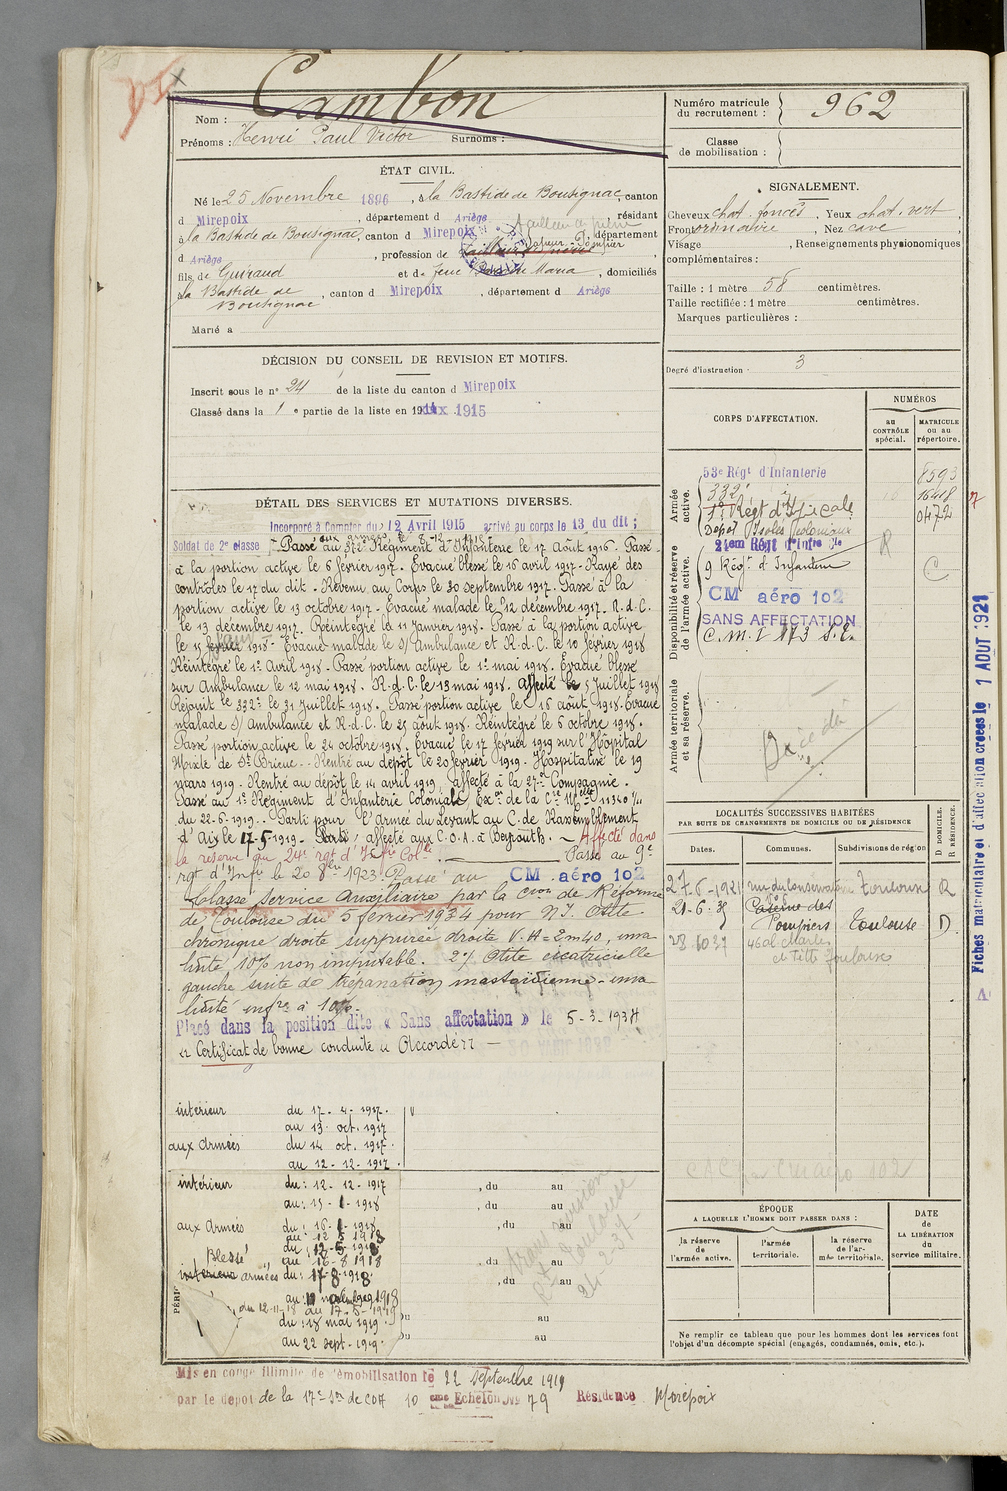 Cambon
Nom :
Prénoms : Henri Paul Victor Surnoms :
ÉTAT CIVIL.
Né le 25 Novembre 1896, à la Bastide de Bousignac, canton
d Mirepoix, département d Ariège, résidant
à la Bastide de Bousignac, canton d Mirepoix, département
d Ariège, profession de tailleur de pierre Sapeur Pompier
fils de Guiraud et de feue Maria, domiciliés
à la Bastide de Bousignac, canton d Mirepoix, département d Ariège
Marié à
DÉCISION DU CONSEIL DE REVISION ET MOTIFS.
Inscrit sous le n° 24 de la liste du canton d Mirepoix
Classé dans la 1 e partie de la liste en 1915
DÉTAIL DES SERVICES ET MUTATIONS DIVERSES.
Incorporé à Compter du 12 Avril 1915 arrivé au corps le 13 du dit ;
Soldat de 2e classe
Passé au 332e Régiment d'Infanterie le 17 Août 1916. Passé
à la portion active le 6 février 1917. Evacué blessé le 16 avril 1917. Rayé des
contrôles le 17 du dit. Revenu au Corps le 30 septembre 1917. Passé à la
portion active le 13 octobre 1917. Evacué malade le 12 décembre 1917. R.d.C.
le 13 décembre 1917. Réintégré la 11 Janvier 1918. Passé à la portion active
le 15 janv 1918. Evacué malade le s/ Ambulance et R.d.C. le 10 février 1918
Réintégré le 1er Avril 1918. Passé portion active le 1er mai 1918. Evacué blessé
sur Ambulance le 12 mai 1918. R.d.C. le 13 mai 1918. Affecté le 5 Juillet 1918
Rejoint le 332e le 31 Juillet 1918. Passé portion active le 16 août 1918. Evacué
malade s/ Ambulance et R.d.C. le 25 août 1918. Réintégré le 6 octobre 1918.
Passé portion active le 24 octobre 1918. Evacué le 17 février 1919 sur l'Hôpital
Mixte de St Brieuc. Rentré au dépôt le 20 février 1919. Hospitalisé le 19
mars 1919. Rentré au dépôt le 14 avril 1919, affecté à la 27e Compagnie.
Passé au 1er Régiment d'Infanterie Coloniale Exon de la Cre Mlle 11340 1/11
du 22-6-1919. Parti pour l'armée du Levant au C. de Rassemblement
d'Aix le 17-5-1919. Parti, affecté aux C.O.A. à Beyrouth. Affecté dans
la réserve au 24e rgt d'Infie Colle. Passé au 9e
rgt d'Infie le 20 8bre 1923. Passé au CM. aéro 102
Classé Service Auxiliaire par la Cion de Réforme
de Toulouse du 5 février 1934 pour N.I. Otite
chronique droite suppurée droite V.A = 2m40, inva
lidité 10% non imputable. 2°/ Otite cicatricielle
gauche suite de trépanation mastoïdienne. inva
lidité infre à 10%.
Placé dans la position dite « Sans affectation » le 5-3-1938
" Certificat de bonne conduite " Accordé " —
intérieur du 17-4-1917.
au 13 oct. 1917
aux Armées du 14 oct. 1917
au 12-12-1917
intérieur du : 12-12-1917
au : 15-1-1918
aux Armées du : 16-1-1918
au 12 5 1918
Blessé du : 12-5-1918
au 16-8 1918
intérieur armées du : 17-8-1918
du 12-11-18 au 17-5-1919
du : 18 mai 1919
au 22 sept. 1919.
, du au
, du au
, du au
, du au
, du au
Du au
Du au
pension
Toulouse
Mis en congé illimité de démobilisation le 22 Septembre 1919
par le depot de la 17e Son de COA 10 eme Echelon No 79 Résidence Mirepoix
Numéro matricule du recrutement : 962
Classe de mobilisation :
SIGNALEMENT.
Cheveux chat. foncés, Yeux chat. vert,
Front ordinaire, Nez cave
Visage , Renseignements physionomiques
complémentaires :
Taille : 1 mètre 58 centimètres.
Taille rectifiée : 1 mètre centimètres.
Marques particulières :
Degré d'instruction 3
CORPS D'AFFECTATION.
NUMÉROS
au CONTRÔLE spécial.
MATRICULE ou au répertoire.
Armée active.
53e Régt d'Infanterie 8593
332e 16418
1er Régt d'Icale 0472
Dépot Isolés Coloniaux
Disponibilité et réserve de l'armée active.
24em Régt d'Infie Cle R
9 Régt d'Infanterie C
CM aéro 102
SANS AFFECTATION
C.M.I 173 S.E.
Armée territoriale et sa réserve.
Décédé
LOCALITÉS SUCCESSIVES HABITÉES
PAR SUITE DE CHANGEMENTS DE DOMICILE OU DE RÉSIDENCE
Dates. Communes. Subdivisions de région
D DOMICILE. R RÉSIDENCE.
27-5-1921 rue du Conservatoire Toulouse R
21-6-35 Caserne des Pompiers Toulouse D.
28 10 37 46 al. Charles et Fitte Toulouse
CAC par CM aéro 102
ÉPOQUE
A LAQUELLE L'HOMME DOIT PASSER DANS :
la réserve de l'armée active.
l'armée territoriale.
la réserve de l'armée territoriale.
DATE de LA LIBÉRATION du service militaire.
Ne remplir ce tableau que pour les hommes dont les services font
l'objet d'un décompte spécial (engagés, condamnés, omis, etc.).
Fiches matriculaire et d'affectation créées le 1 AOUT 1921